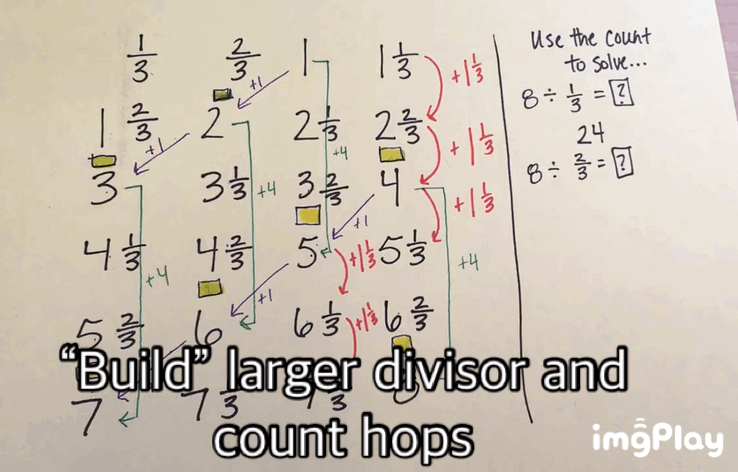 1/3 2/3 1 1 1/3
+1 +1 1/3
1 2/3 2 2 1/3 2 2/3
+1 +4 +1 1/3
3 3 1/3 3 2/3 4
+4 +1 +1 1/3
4 1/3 4 2/3 5 5 1/3
+4 +1 +1 1/3 +4
5 2/3 6 6 1/3 6 2/3
+1 1/3
7
Use the count
to solve...
8 ÷ 1/3 = ?
24
8 ÷ 2/3 = ?
“Build” larger divisor and
count hops
imgPlay